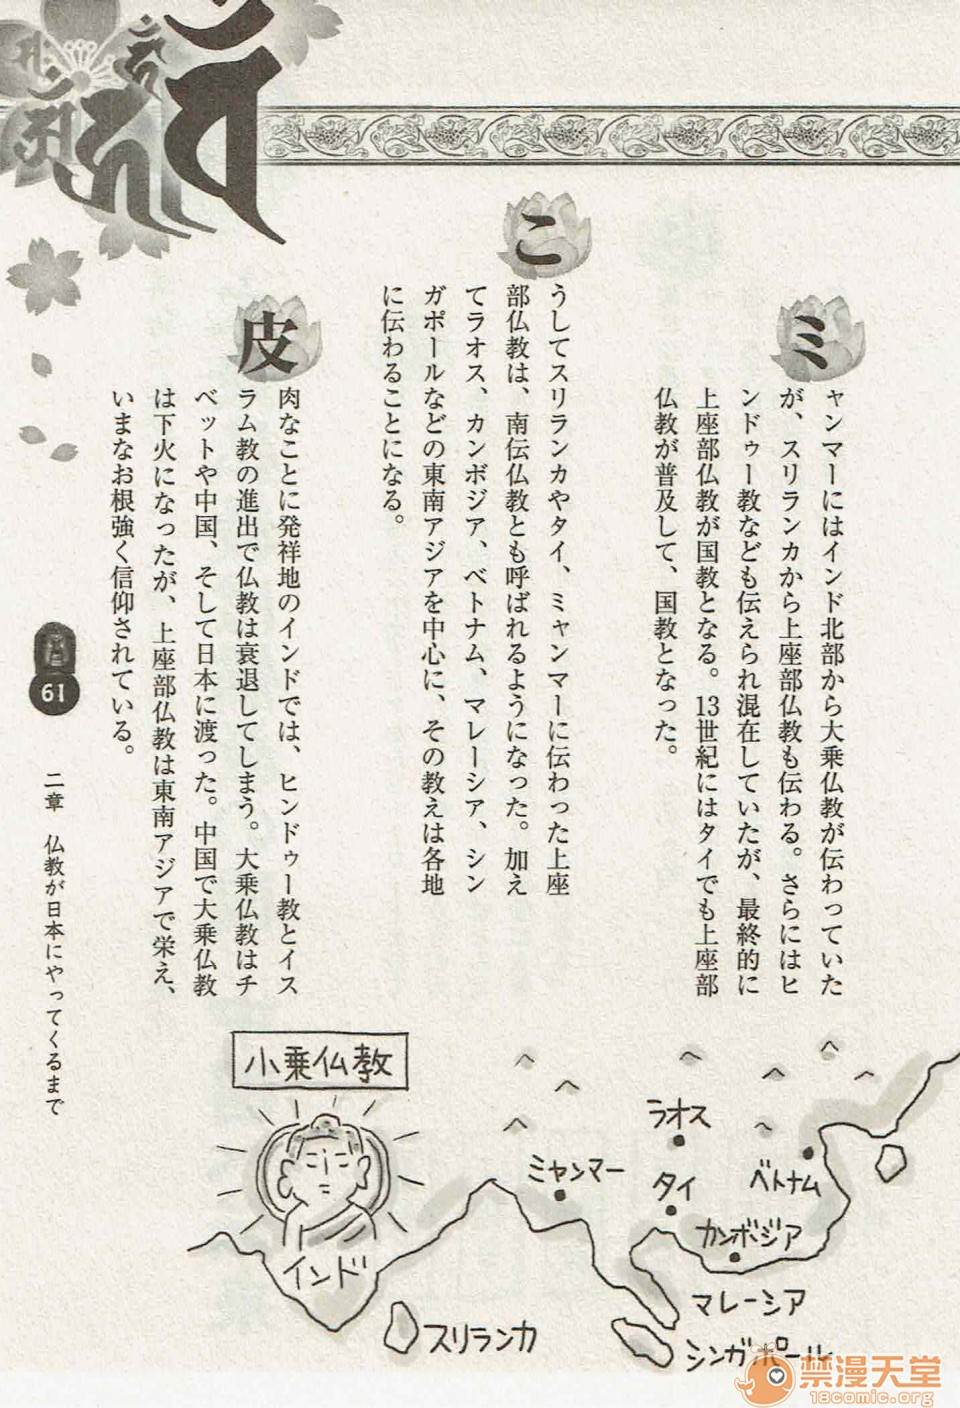 ミャンマーにはインド北部から大乗仏教が伝わっていた
が、スリランカから上座部仏教も伝わる。さらにはヒ
ンドゥー教なども伝えられ混在していたが、最終的に
上座部仏教が国教となる。13世紀にはタイでも上座部
仏教が普及して、国教となった。
こうしてスリランカやタイ、ミャンマーに伝わった上座
部仏教は、南伝仏教とも呼ばれるようになった。加え
てラオス、カンボジア、ベトナム、マレーシア、シン
ガポールなどの東南アジアを中心に、その教えは各地
に伝わることになる。
皮肉なことに発祥地のインドでは、ヒンドゥー教とイス
ラム教の進出で仏教は衰退してしまう。大乗仏教はチ
ベットや中国、そして日本に渡った。中国で大乗仏教
は下火になったが、上座部仏教は東南アジアで栄え、
いまなお根強く信仰されている。
61
二章 仏教が日本にやってくるまで
小乗仏教
インド
スリランカ
ミャンマー
ラオス
タイ
ベトナム
カンボジア
マレーシア
シンガポール
禁漫天堂
18comic.org